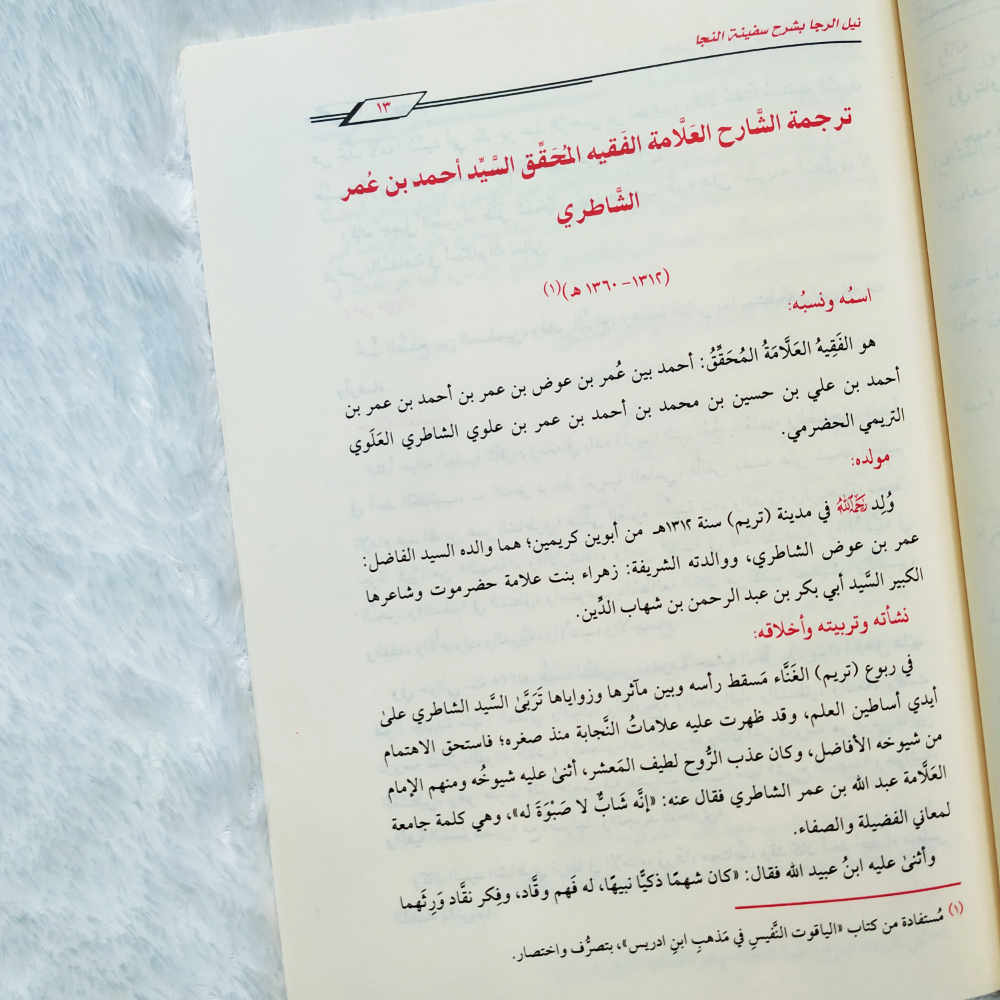 نيل الرجا بشرح سفينة النجا
١٣
ترجمة الشَّارح العَلَّامة الفَقيه المُحَقِّق السَّيِّد أحمد بن عُمر
الشَّاطري
(١٣١٢- ١٣٦٠ هـ)(١)
اسمُه ونسبُه:
هو الفَقِيهُ العَلَّامَةُ المُحَقِّقُ: أحمد بين عُمر بن عوض بن عمر بن أحمد بن عمر بن
أحمد بن علي بن حسين بن محمد بن أحمد بن عمر بن علوي الشاطري العَلَوي
التريمي الحضرمي.
مولده:
وُلِد رَحِمَهُ اللهُ في مدينة (تريم) سنة ١٣١٢هـ من أبوين كريمين؛ هما والده السيد الفاضل:
عمر بن عوض الشاطري، ووالدته الشريفة: زهراء بنت علامة حضرموت وشاعرها
الكبير السَّيد أبي بكر بن عبد الرحمن بن شهاب الدِّين.
نشأته وتربيته وأخلاقه:
في ربوع (تريم) الغَنَّاء مَسقط رأسه وبين مآثرها وزواياها تَرَبَّىٰ السَّيد الشاطري علىٰ
أيدي أساطين العلم، وقد ظهرت عليه علاماتُ النَّجابة منذ صغره؛ فاستحق الاهتمام
من شيوخه الأفاضل، وكان عذب الرُّوح لطيف المَعشر، أثنىٰ عليه شيوخُه ومنهم الإمام
العَلَّامة عبد الله بن عمر الشاطري فقال عنه: «إنَّه شَابٌّ لا صَبْوَةَ له»، وهي كلمة جامعة
لمعاني الفضيلة والصفاء.
وأثنىٰ عليه ابنُ عبيد الله فقال: «كان شهمًا ذكيًّا نبيهًا، له فَهم وقَّاد، وفِكر نقَّاد وَرِثَهما
(١) مُستفادة من كتاب «الياقوت النَّفيسِ في مَذهبِ ابنِ ادريس»، بتصرُّف واختصار.